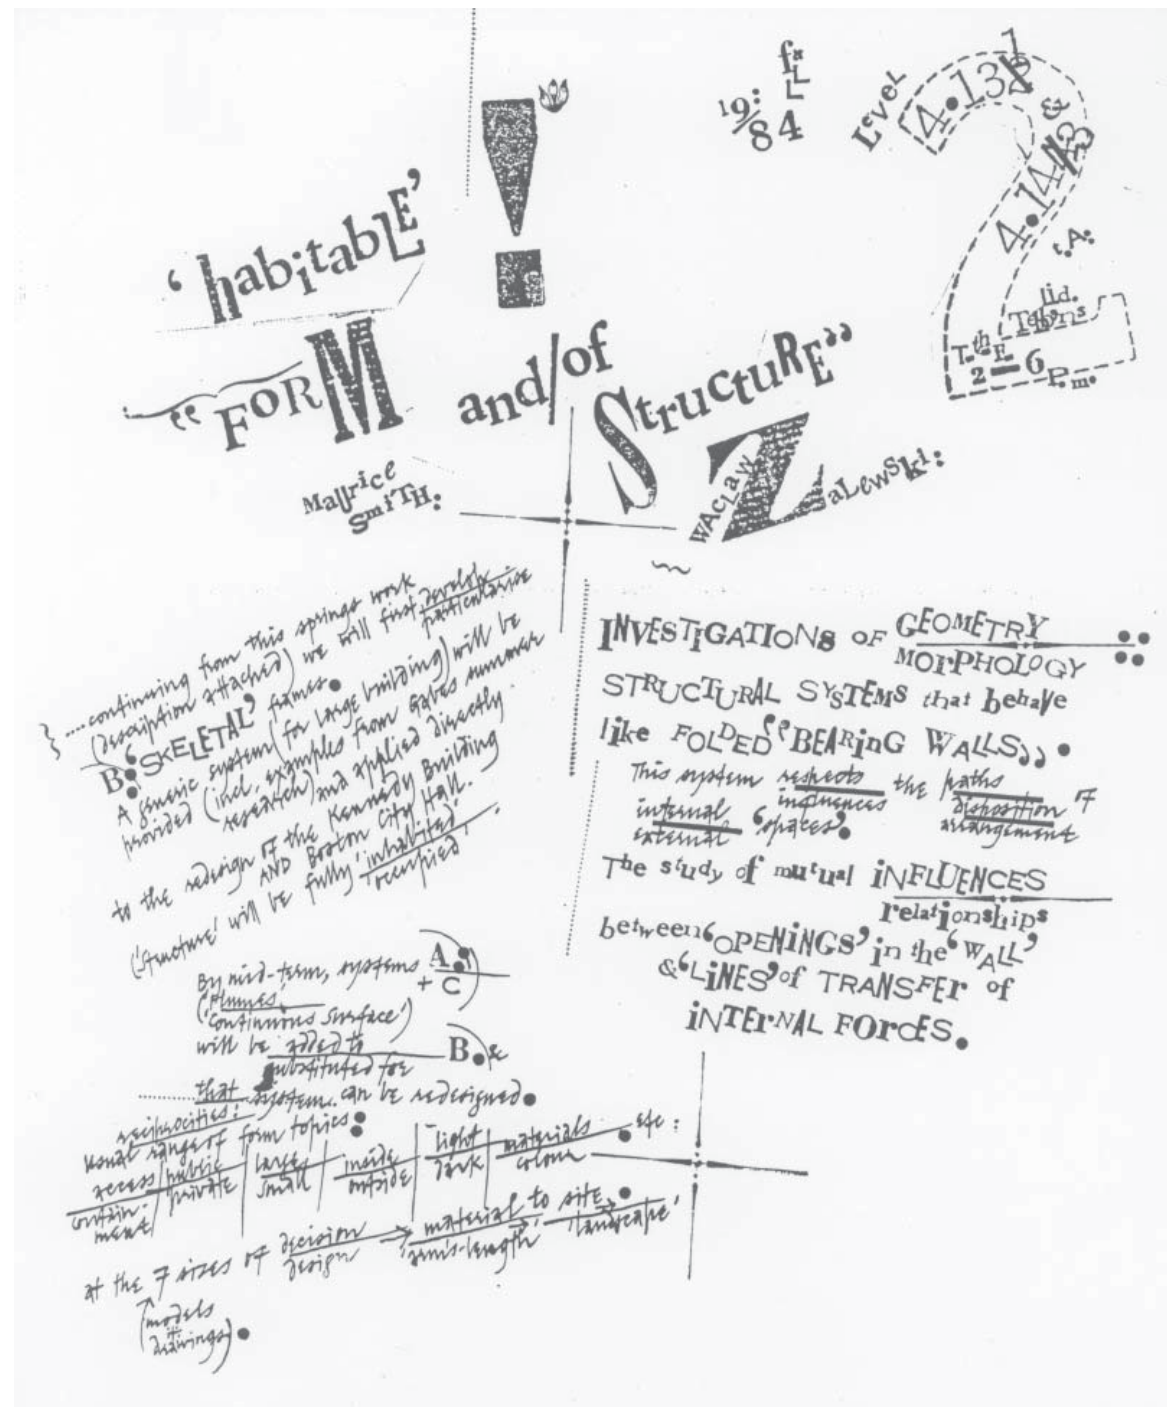 faLL
19:84
LeveL
4.132 1
&
4.143
t.A:
lid.
T.th E.
2—6 P.m.
!
'habitabLE'
"FORM and/of StructuRE"
Maurice SmiTH:
WAcLaw ZaLewSki:
}....continuing from this springs work
(description attached) we will first develop
particularise
B: 'SKELETAL' frames.
A generic system (for large building) will be
provided (incl. examples from Gabes summer
research) and applied directly.
to the redesign of the Kennedy Building
AND Boston City Hall.
('structure' will be fully 'inhabited'.
'occupied'
By mid-term, systems A.
+ C
('Plumes'
'Continuous Surface')
will be added to B. &
substituted for
........that system can be redesigned.
reciprocities:
usual range of form topics:
access | public | large | inside | light | materials . etc:
contain-ment | private | small | outside | dark | colour
at the 7 sizes of decision → material to site.
design 'arm's-length' → 'landscape'
(models
+
drawings).
INVESTiGATIONS OF GEOMETRY ::
MOrPHOLOGY
STRUCTURAL SYSTEMS that behave
like FOLDED "BEARinG WALLS" .
This system respects the paths of
influences disposition
internal 'spaces'. arrangement
external
The study of mutual iNFLUENCES
relationships
between 'OPENiNGS' in the 'WALL'
& 'LiNES' of TRANSFEr of
iNTErNAL FOrCES.